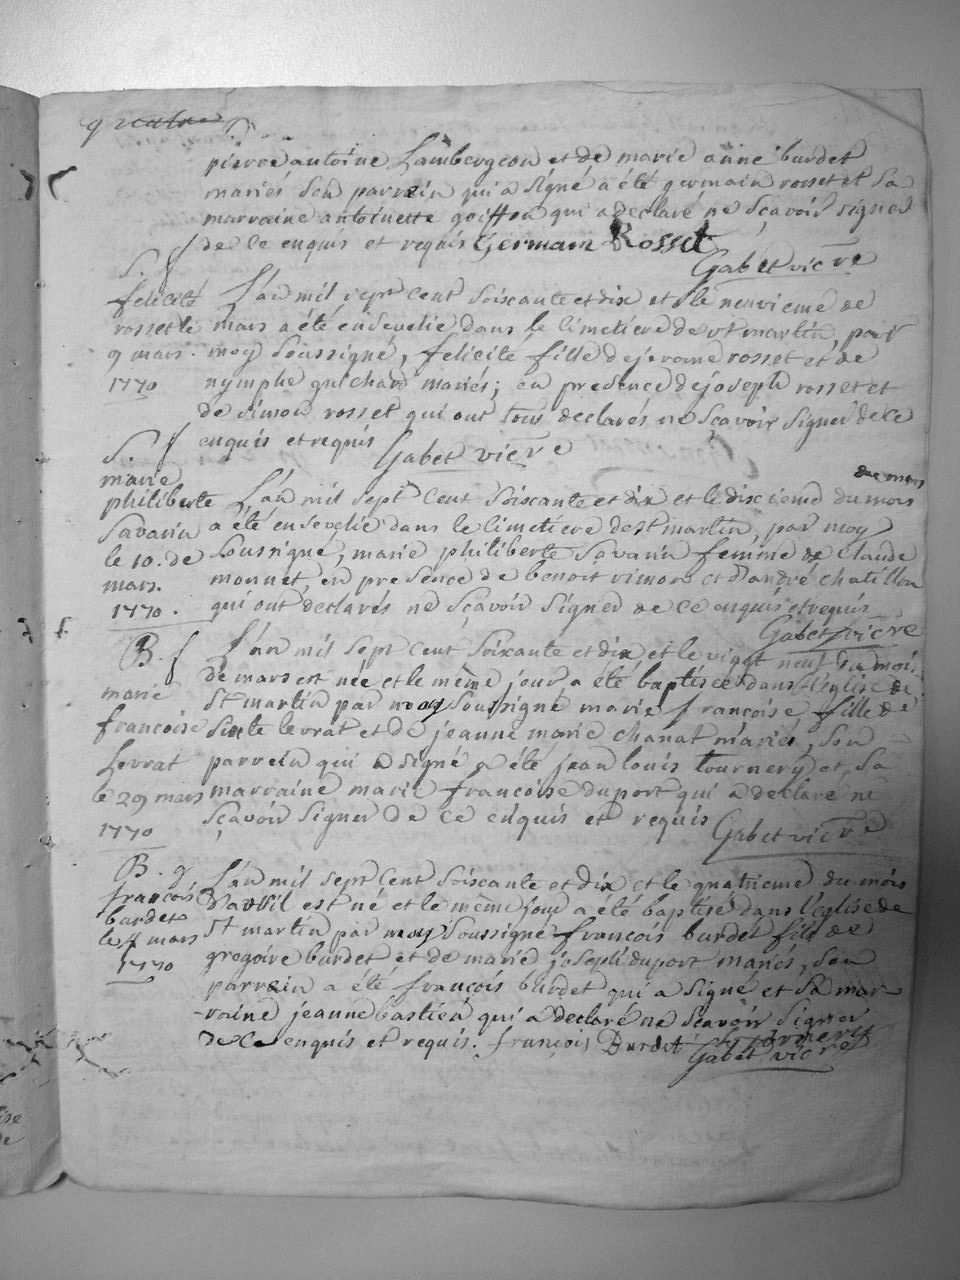 quatre
pierre antoine Lambergeon et de marie anne burdet
mariés son parrein qui a signé a été germain rosset et sa
marraine antoinette goiffon qui a declaré ne sçavoir signer
de ce enquis et requis Germain Rosset
Gabet vicre
S. f
felicité
rosset le
9 mars
1770
L'an mil sept cent soiscante et dix et le neuvieme de
mars a été ensevelie dans le cimetiere de st martin, par
moy soussigné, felicité fille de jerome rosset et de
nymphe guichard mariés; en presence de joseph rosset et
de simon rosset qui ont tous declarés ne sçavoir signer de ce
enquis et requis Gabet vicre
S. f
marie
philiberte
Savarin
le 10. de
mars.
1770.
L'an mil sept cent soiscante et dix et le dixcieme du mois
de mars
a été ensevelie dans le cimetiere de st martin, par moy
soussigné, marie philiberte Savarin femme de Claude
monnet, en presence de benoit rimon et d'andré chatillon
qui ont declarés ne sçavoir signer de ce enquis et requis
Gabet vicre
B. f
marie
françoise
Levrat
le 29 mars
1770
L'an mil sept cent soixante et dix et le vingt neuf du mois
de mars est née et le même jour a été baptisée dans l'eglise de
St martin par moy soussigné marie françoise, fille de
levrat et de jeanne marie chanat mariés, son
parrein qui a signé a été jean louis tournery et sa
marraine marie françoise duport qui a declaré ne
sçavoir signer de ce enquis et requis Gabet vicre
B. g
françois
burdet
le 4 mars
1770
L'an mil sept cent soiscante et dix et le quatrieme du mois
d'avril est né et le même jour a été baptisé dans l'eglise de
St martin par moy soussigné françois burdet fils de
gregoire burdet et de marie joseph duport mariés, son
parrein a été françois burdet qui a signé et sa mar-
raine jeanne bastien qui a declaré ne sçavoir signer
de ce enquis et requis. françois Burdet
Gabet vicre